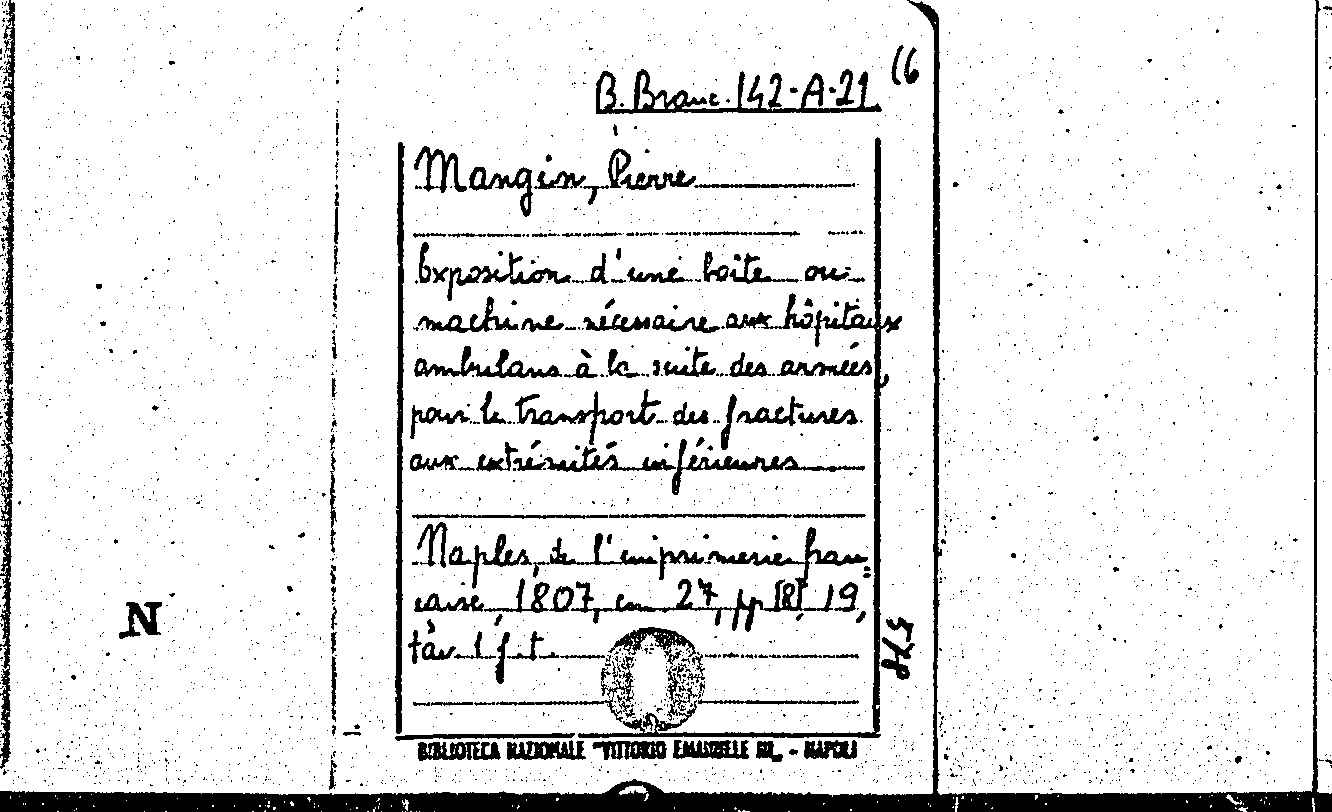 16
B. Branc. 142-A-21
Mangin, Pierre
Exposition d'une boîte ou
machine nécessaire aux hôpitaux
ambulans à la suite des armées,
pour le transport des fractures
aux extrémités inférieures
Naples, de l'imprimerie fran=
çaise, 1807, cm 27, pp [8], 19,
tav. 1 f. t.
N
BIBLIOTECA NAZIONALE "VITTORIO EMANUELE III" - NAPOLI